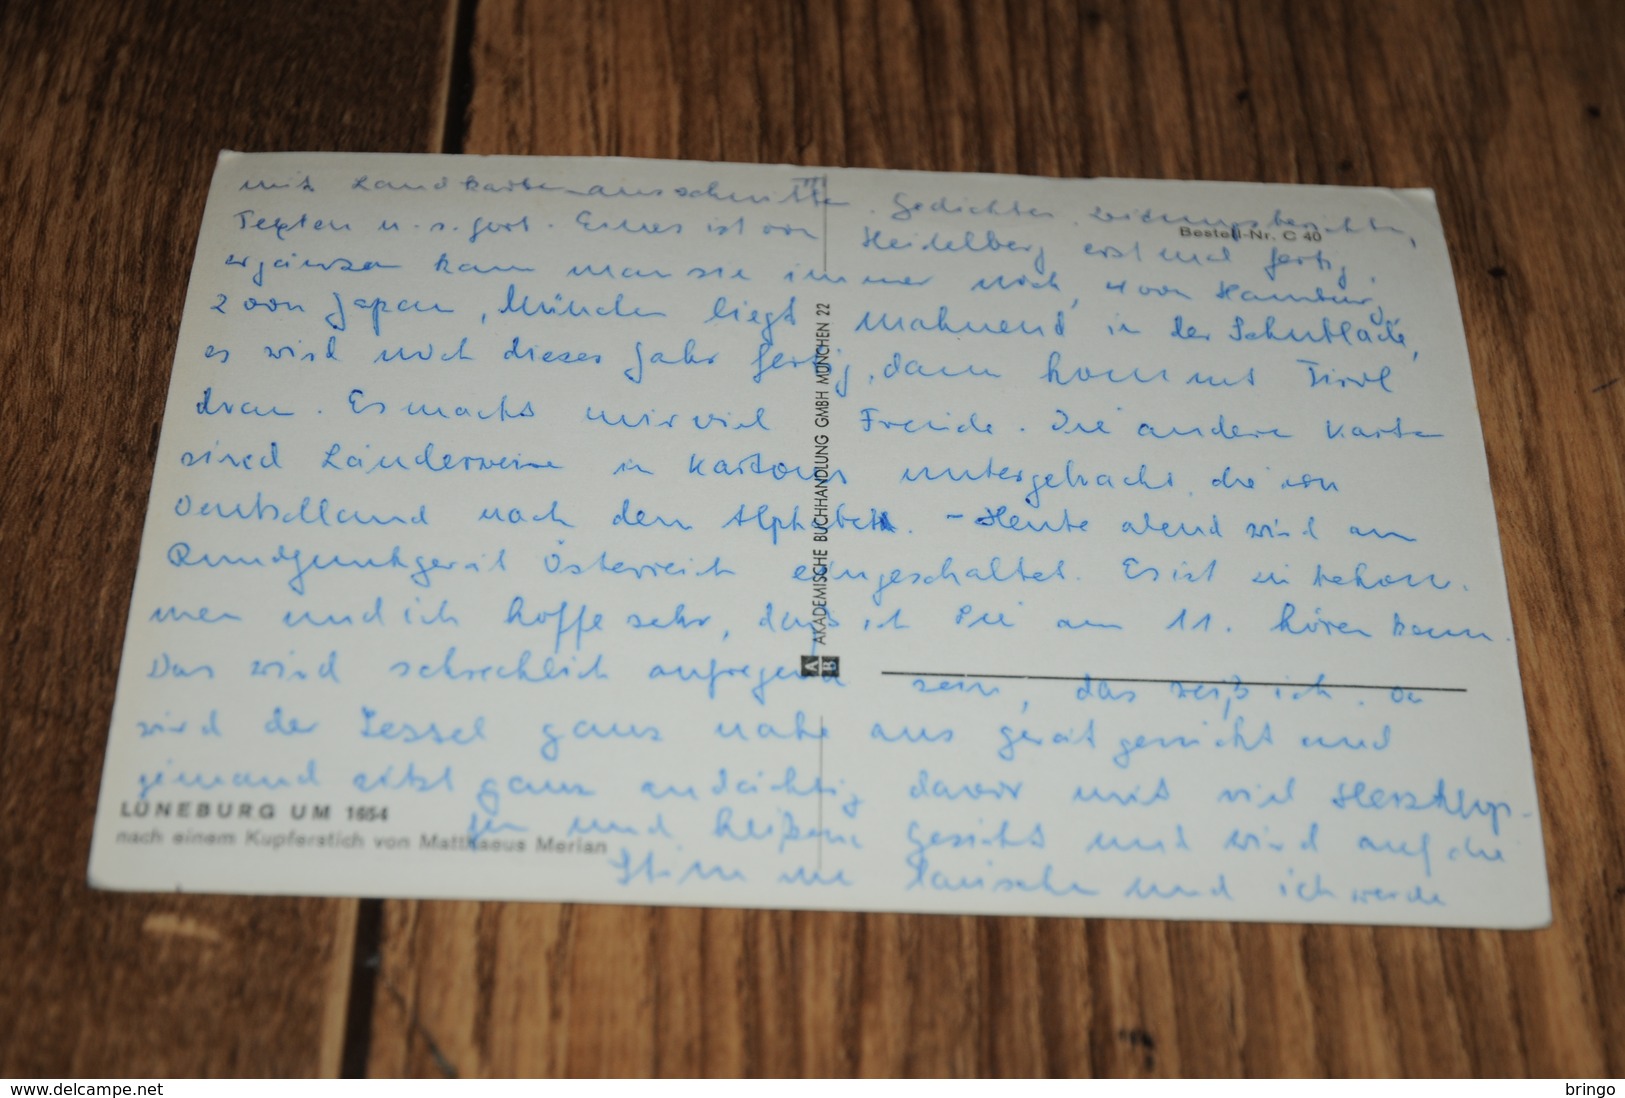 mit Landkartenausschnitten. Gedichten, Zeitungsberichten,
Texten u. s. fort. Eines ist von Heidelberg erst mal fertig,
Bestell-Nr. C 40
ergänzen kann man sie immer noch, 4 von Hamburg,
2 von Japan, München liegt mahnend in der Schublade,
es wird noch dieses Jahr fertig, dann kommt Tirol
dran. Es macht mir viel Freude. Die andere Karten
sind Länderweise in Kartons untergebracht, die von
Deutschland nach dem Alphabet. - Heute abend wird am
Rundfunkgerät Österreich eingeschaltet. Es ist zu bekom-
men und ich hoffe sehr, daß ich Sie am 11. hören kann.
Das wird schrecklich aufregend sein, das weiß ich. Da
wird der Sessel ganz nahe ans Gerät gerückt und
jemand sitzt ganz andächtig davor mit viel Herzklop-
fen und heißem Gesicht und wird auf die
Stimme lauschen und ich werde
AKADEMISCHE BUCHHANDLUNG GMBH MÜNCHEN 22
A B
LÜNEBURG UM 1654
nach einem Kupferstich von Matthaeus Merian
www.delcampe.net
bringo